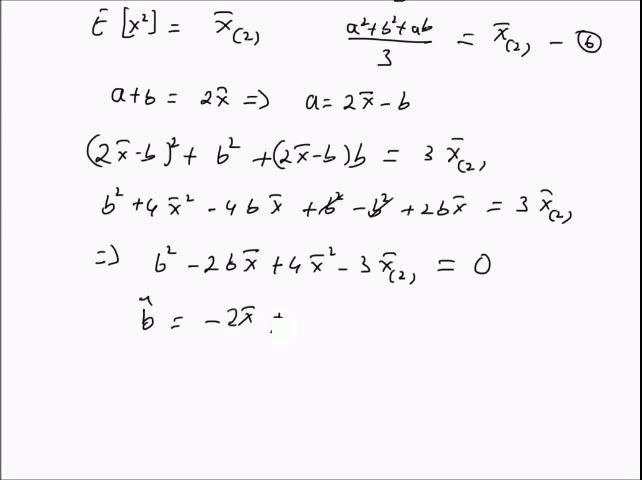 E [x²] = x̄₍₂₎   (a²+b²+ab)/3 = x̄₍₂₎ - ⑥
a+b = 2x̄ => a = 2x̄ - b
(2x̄-b)² + b² + (2x̄-b)b = 3 x̄₍₂₎
b² + 4x̄² - 4bx̄ + b² - b² + 2bx̄ = 3 x̄₍₂₎
=> b² - 2bx̄ + 4x̄² - 3x̄₍₂₎ = 0
b̂ = - 2x̄ +